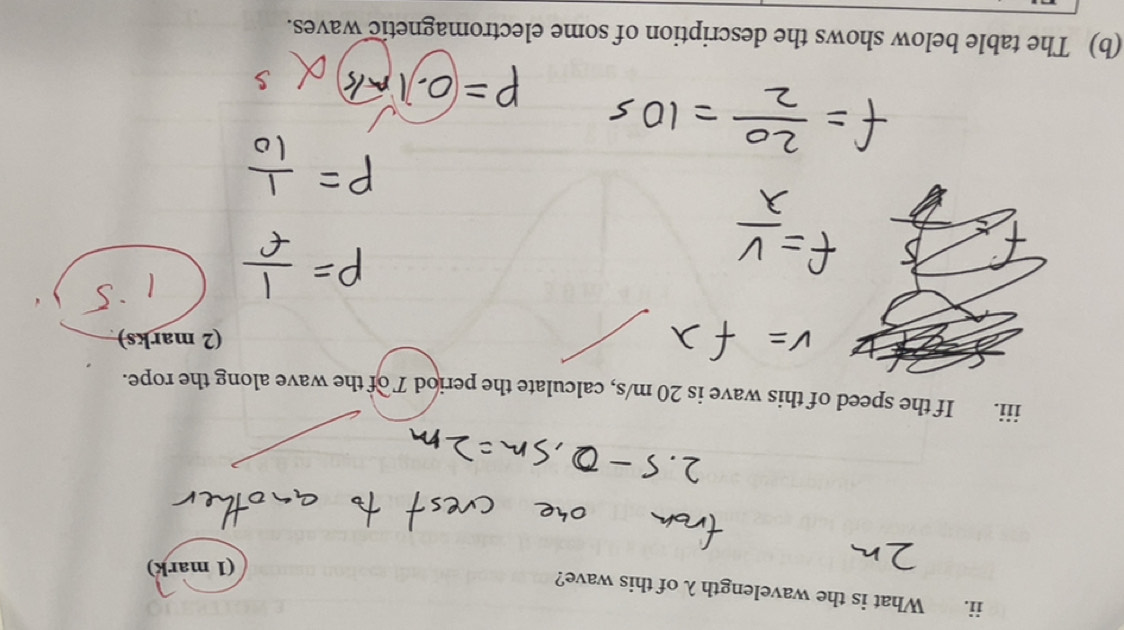 ii. What is the wavelength λ of this wave? (1 mark)
2m from one crest to another
2.5 - 0.5m = 2m
iii. If the speed of this wave is 20 m/s, calculate the period T of the wave along the rope.
(2 marks)
1.5
v = f λ
f = v/λ
f = 20/2 = 10 s
p = 1/f
p = 1/10
p = 0.1 m/s X s
(b) The table below shows the description of some electromagnetic waves.